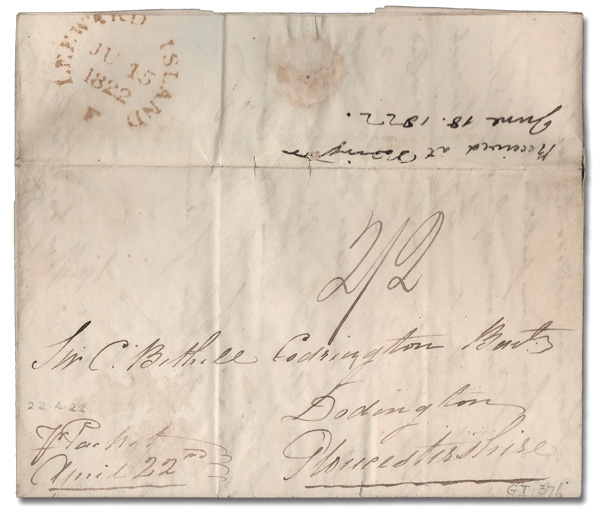 LEEWARD ISLAND
JU 15
1822
L
Received at
June 18. 1822.
2/2
Sir C. Bethell Codrington Bart.
Dodington
Gloucestershire
22 4 22
Pr Packet
April 22nd
GI 376